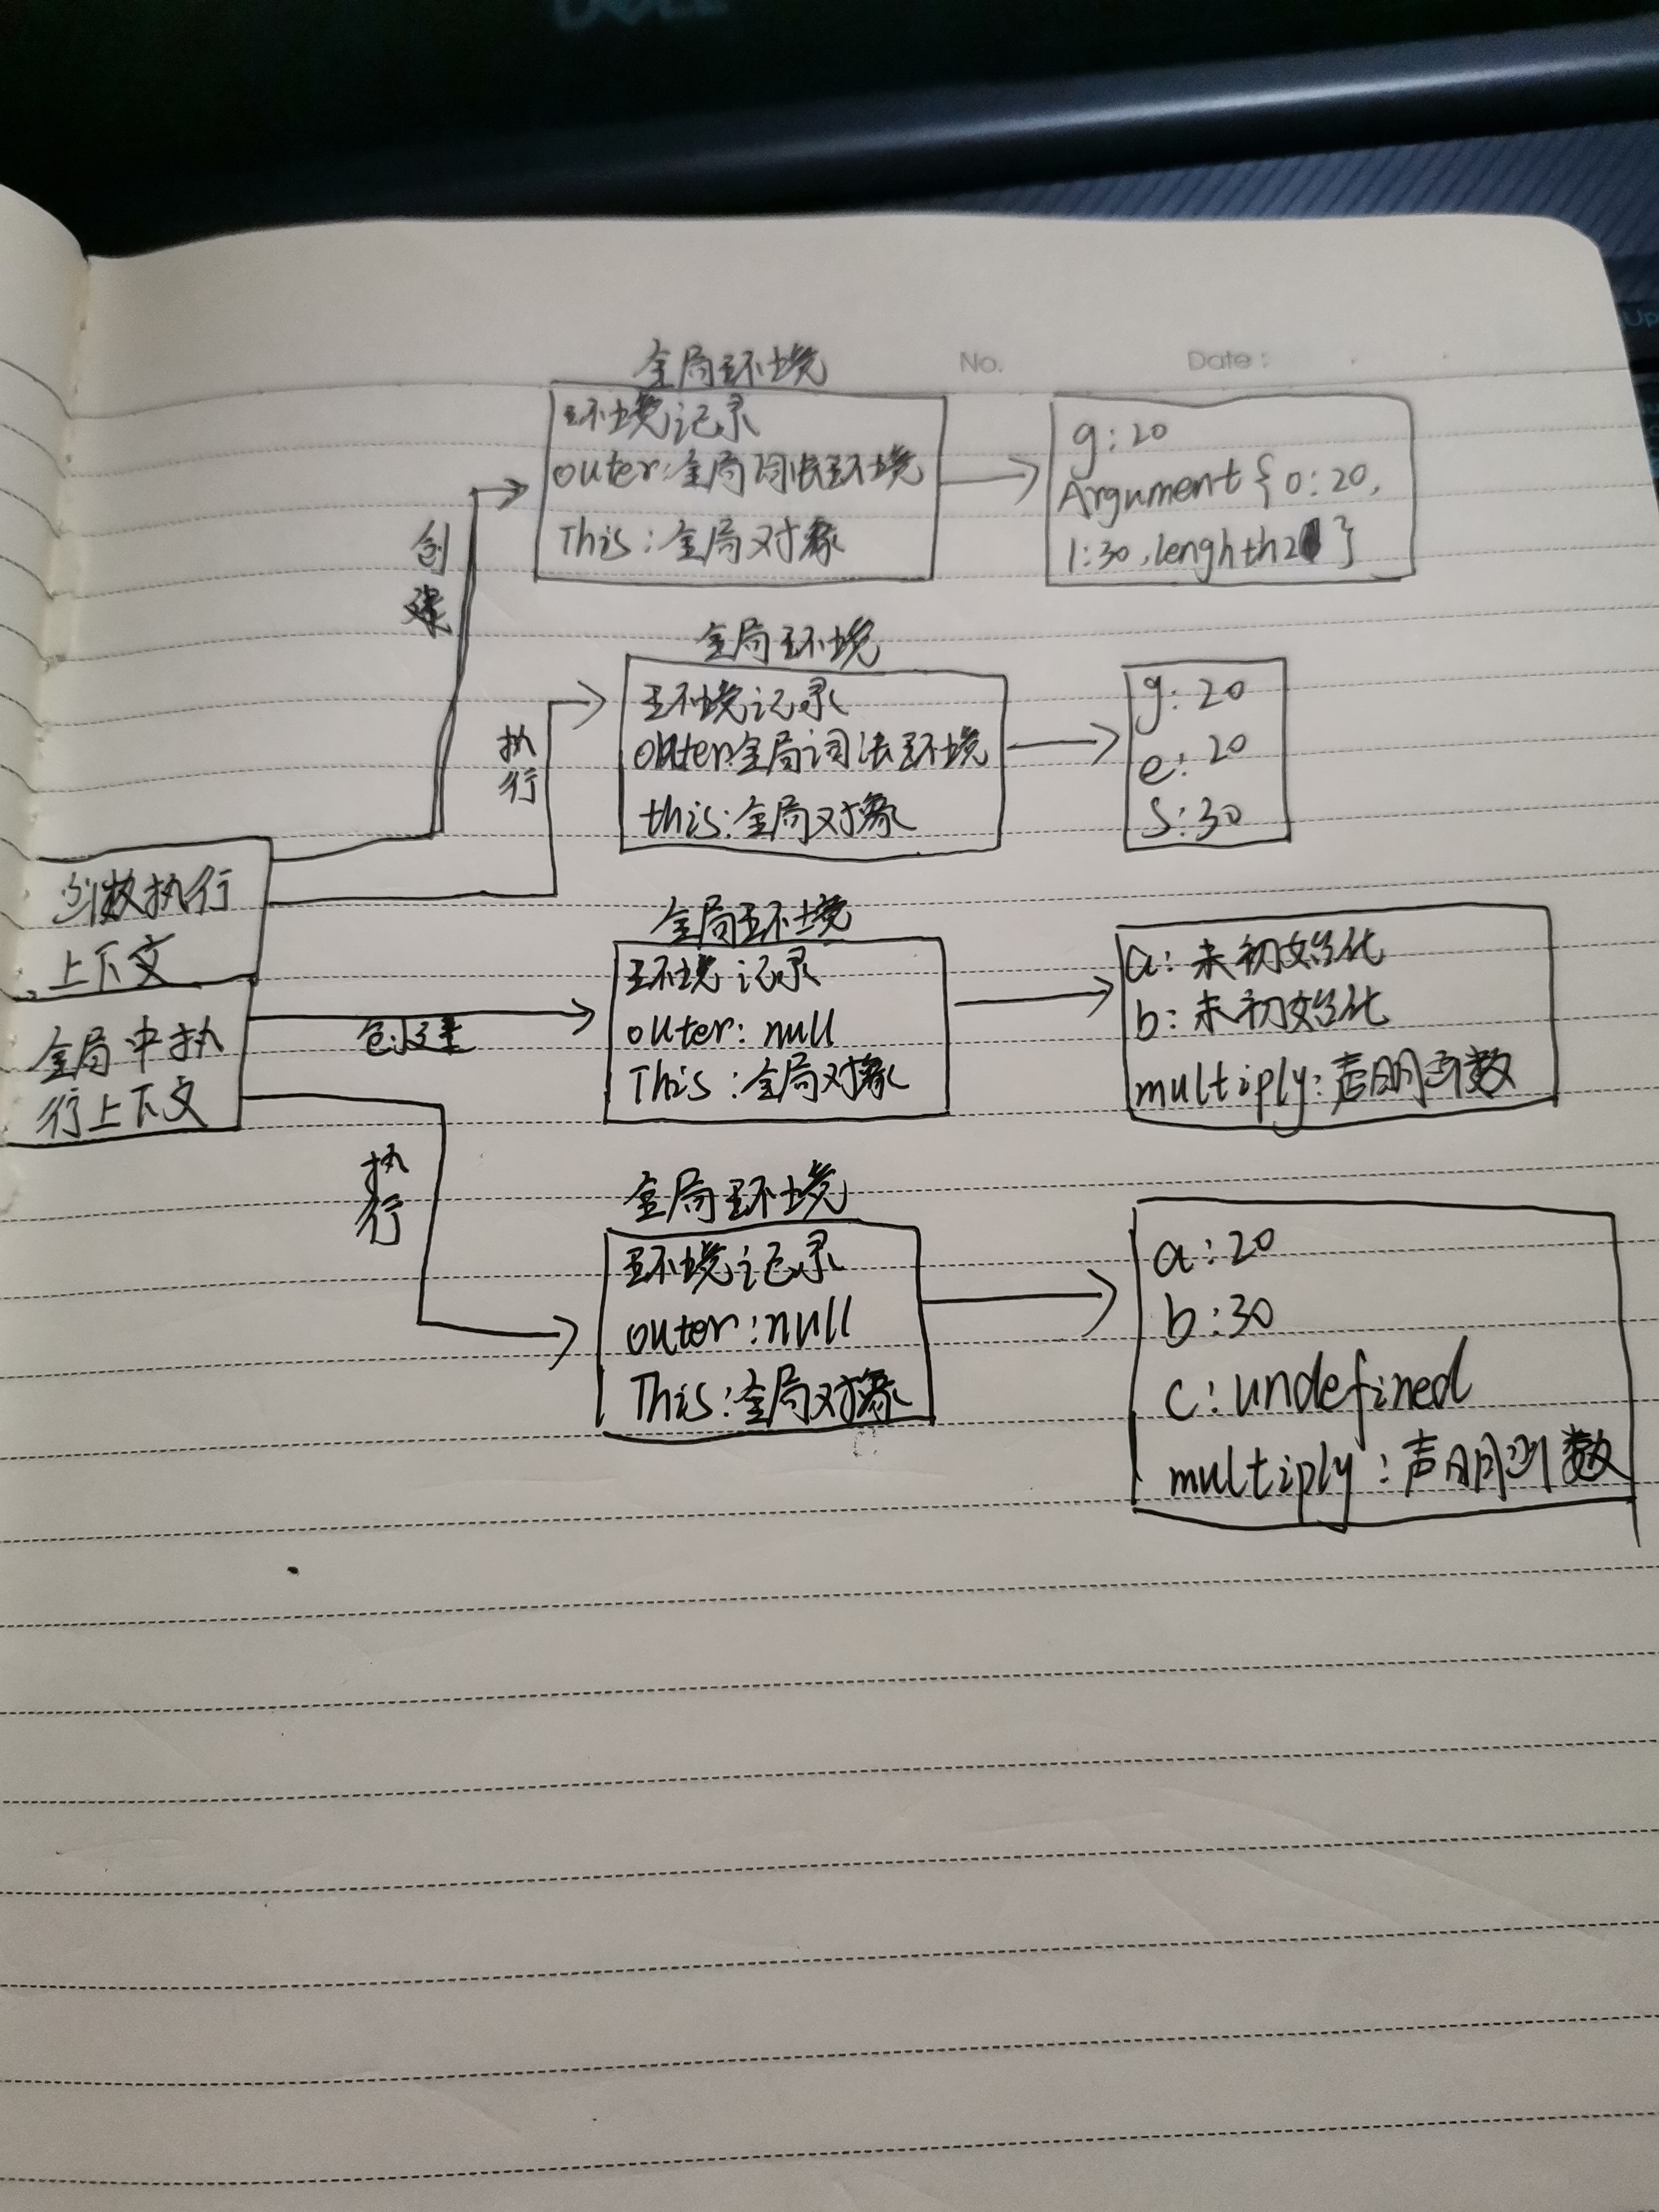 DELL
No.
Date:
全局环境
环境记录
outer:全局词法环境
This:全局对象
g:20
Argument{0:20,
1:30,lenghth2 }
创
建
全局环境
环境记录
outer:全局词法环境
this:全局对象
g:20
e:20
S:30
执
行
函数执行
上下文
全局中执
行上下文
全局环境
环境记录
outer:null
This:全局对象
创建
a:未初始化
b:未初始化
multiply:声明函数
执
行
全局环境
环境记录
outer:null
This:全局对象
a:20
b:30
c:undefined
multiply:声明函数